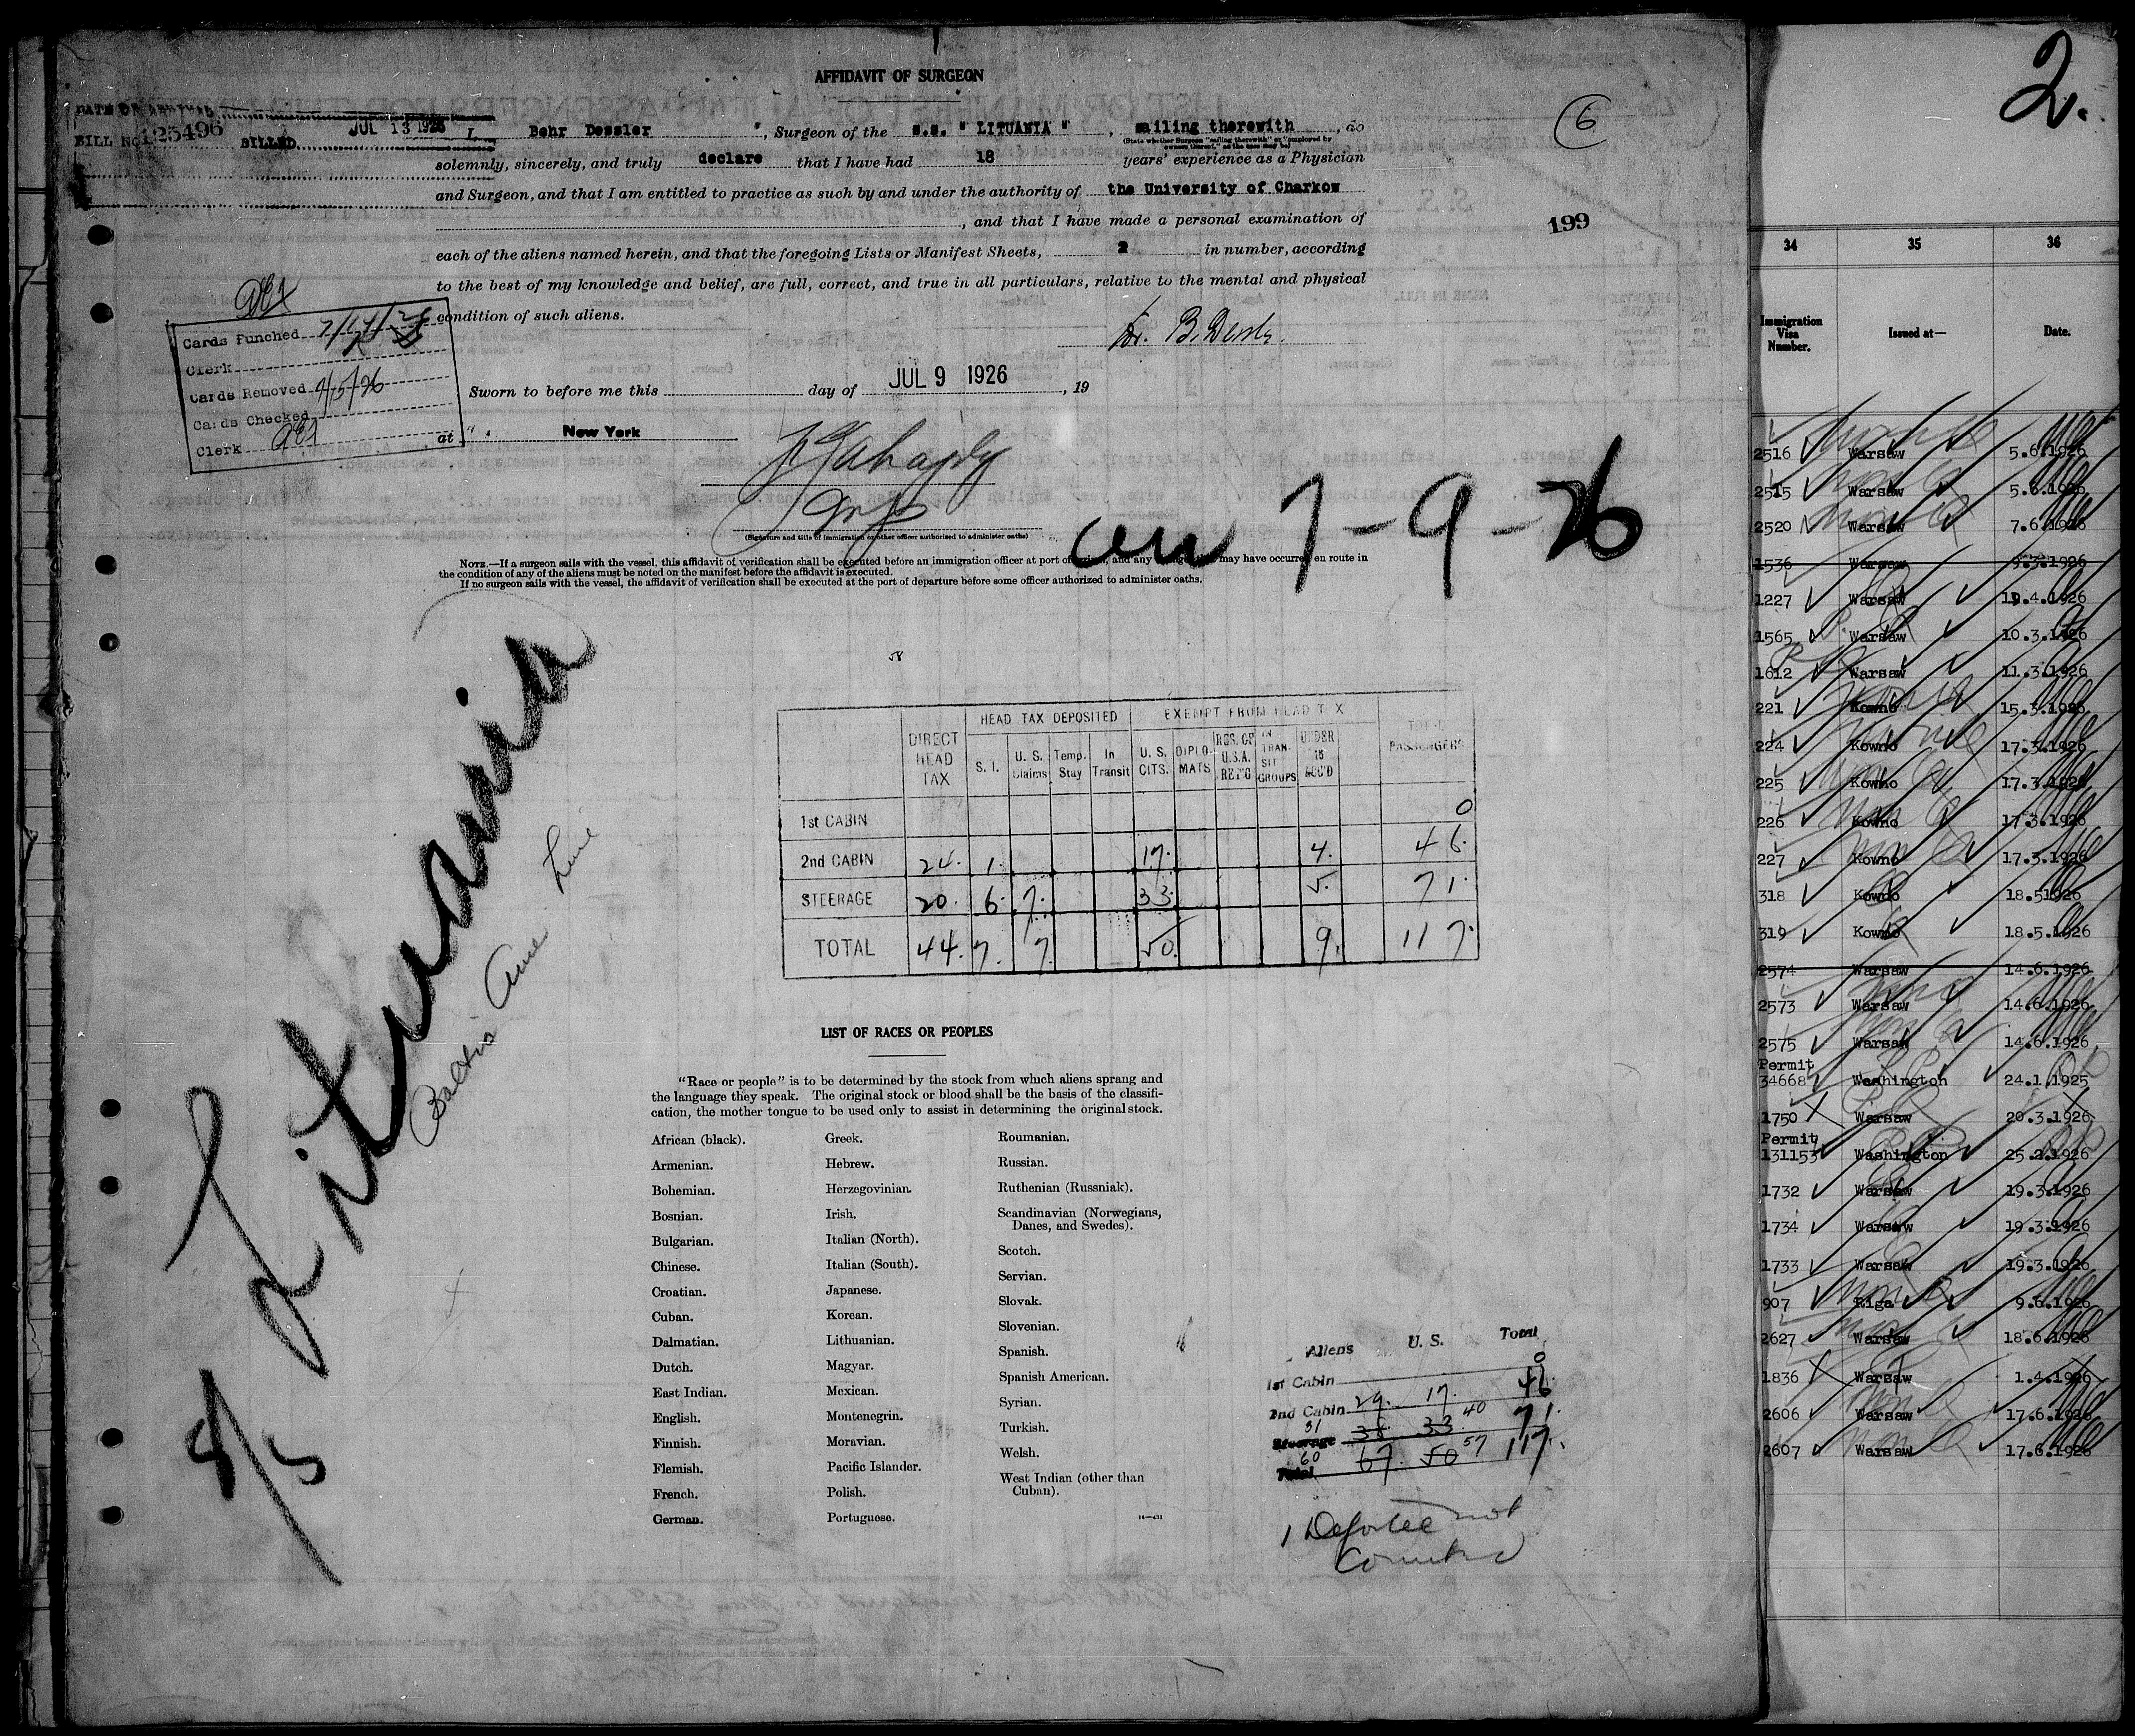 AFFIDAVIT OF SURGEON
DATE OF ARRIVAL
BILL No. 125496 BILLED JUL 13 1926
I, Behr Dessler, Surgeon of the s.s. "LITUANIA", sailing therewith, do
(State whether Surgeon "sailing therewith" or "employed by
owners thereof," as the case may be)
solemnly, sincerely, and truly declare that I have had 18 years' experience as a Physician
and Surgeon, and that I am entitled to practice as such by and under the authority of the University of Charkow
, and that I have made a personal examination of
each of the aliens named herein, and that the foregoing Lists or Manifest Sheets, 2 in number, according
to the best of my knowledge and belief, are full, correct, and true in all particulars, relative to the mental and physical
condition of such aliens.
6
199
Cards Punched
Clerk
Cards Removed 4/5/26
Cards Checked
Clerk
Dr. B. Dessler.
Sworn to before me this day of JUL 9 1926, 19
at New York
(Signature and title of immigration or other officer authorized to administer oaths)
7-9-26
NOTE.—If a surgeon sails with the vessel, this affidavit of verification shall be executed before an immigration officer at port of and any may have occurred en route in
the condition of any of the aliens must be noted on the manifest before the affidavit is executed.
If no surgeon sails with the vessel, the affidavit of verification shall be executed at the port of departure before some officer authorized to administer oaths.
Lituania
Baltic Ame Line
8/5
HEAD TAX DEPOSITED EXEMPT FROM HEAD TAX
DIRECT HEAD TAX S. I. U. S. Claims Temp. Stay In Transit U. S. CITS. DIPLO-MATS RES. OF U.S.A. RET'G IN TRAN-SIT GROUPS UNDER 16 ACC'D TOTAL PASSENGERS
1st CABIN 0
2nd CABIN 24. 1. 17. 4. 46.
STEERAGE 20. 6. 7. 33. 5. 71.
TOTAL 44. 7. 7. 50. 9. 117.
LIST OF RACES OR PEOPLES
"Race or people" is to be determined by the stock from which aliens sprang and
the language they speak. The original stock or blood shall be the basis of the classifi-
cation, the mother tongue to be used only to assist in determining the original stock.
African (black).
Armenian.
Bohemian.
Bosnian.
Bulgarian.
Chinese.
Croatian.
Cuban.
Dalmatian.
Dutch.
East Indian.
English.
Finnish.
Flemish.
French.
German.
Greek.
Hebrew.
Herzegovinian.
Irish.
Italian (North).
Italian (South).
Japanese.
Korean.
Lithuanian.
Magyar.
Mexican.
Montenegrin.
Moravian.
Pacific Islander.
Polish.
Portuguese.
Roumanian.
Russian.
Ruthenian (Russniak).
Scandinavian (Norwegians,
Danes, and Swedes).
Scotch.
Servian.
Slovak.
Slovenian.
Spanish.
Spanish American.
Syrian.
Turkish.
Welsh.
West Indian (other than
Cuban).
14—431
Aliens U. S. Total
1st Cabin 0
2nd Cabin 29. 17. 46.
Steerage 31 38 33 40 71.
Total 60 67. 50 57 117.
1 Deportee not
Counted
2.
34 35 36
Immigration Visa Number. Issued at— Date.
2516 Warsaw 5.6.1926
2515 Warsaw 5.6.1926
2520 Warsaw 7.6.1926
1536 Warsaw 9.3.1926
1227 Warsaw 19.4.1926
1565 Warsaw 10.3.1926
1612 Warsaw 11.3.1926
221 Kowno 15.3.1926
224 Kowno 17.3.1926
225 Kowno 17.3.1926
226 Kowno 17.3.1926
227 Kowno 17.3.1926
318 Kowno 18.51926
319 Kowno 18.5.1926
2574 Warsaw 14.6.1926
2573 Warsaw 14.6.1926
2575 Warsaw 14.6.1926
Permit
34668 Washington 24.1.1925
1750 Warsaw 20.3.1926
Permit
131153 Washington 25.2.1926
1732 Warsaw 19.3.1926
1734 Warsaw 19.3.1926
1733 Warsaw 19.3.1926
907 Riga 9.6.1926
2627 Warsaw 18.6.1926
1836 Warsaw 1.4.1926
2606 Warsaw 17.6.1926
2607 Warsaw 17.6.1926